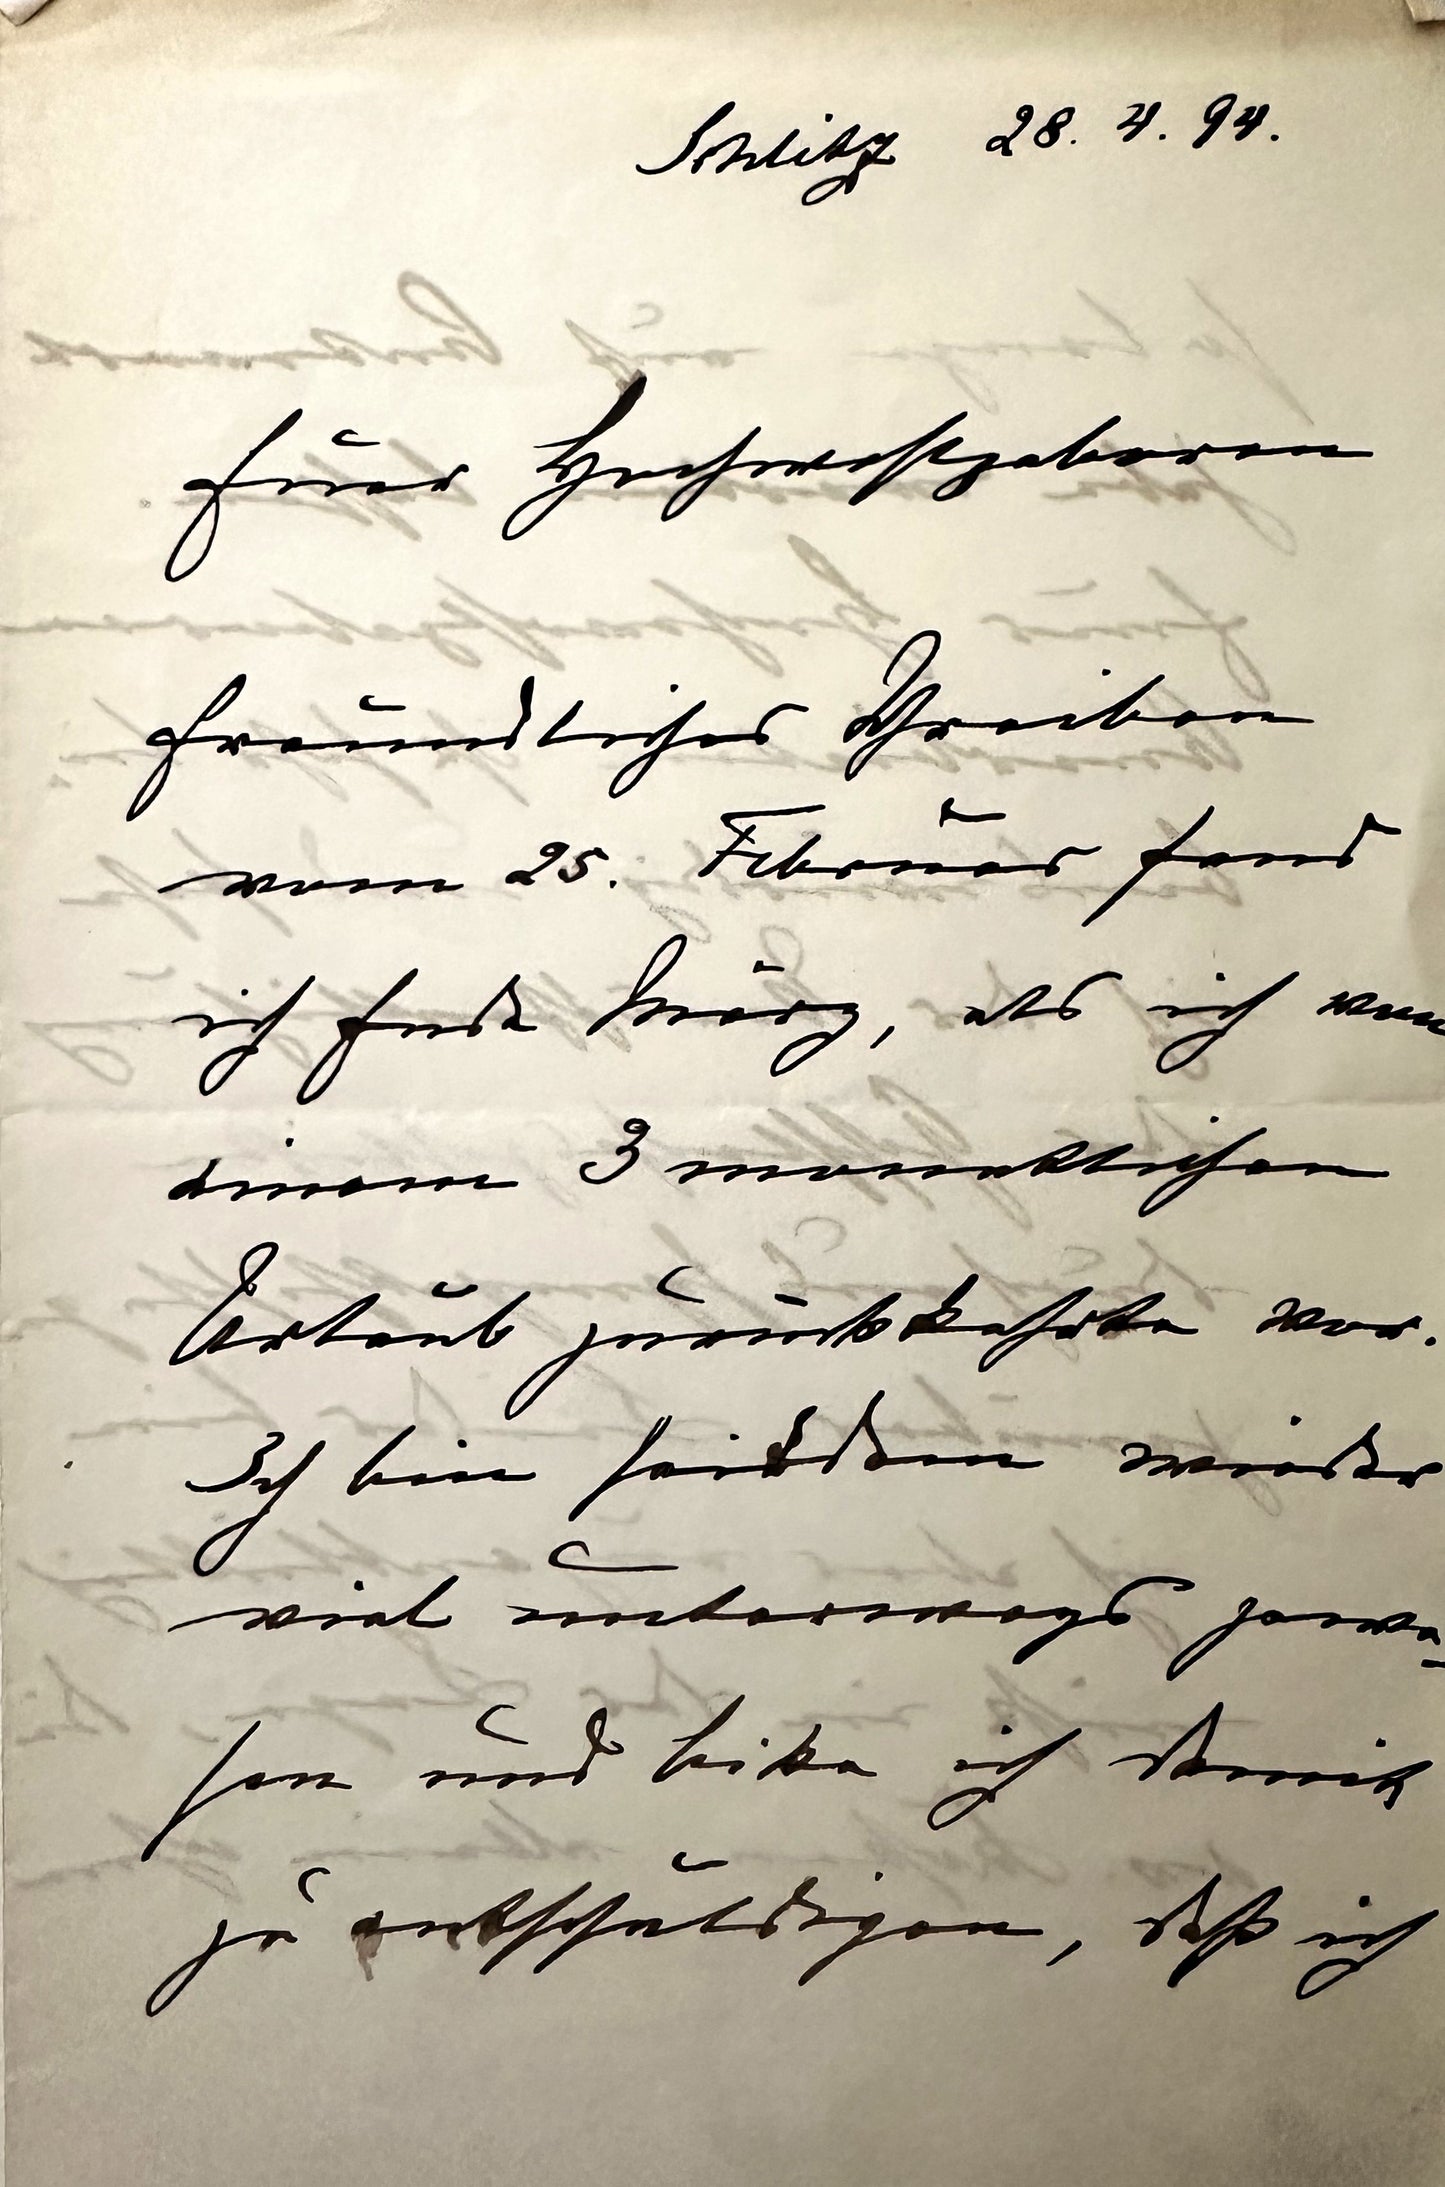 Schlitz 28. 4. 94.
Euer Hochwohlgeboren
freundliches Schreiben
vom 25. Februar fand
ich Ende März, als ich von
einem 3 monatlichen
Urlaub zurückkehrte vor.
Ich bin seitdem wieder
viel unterwegs gewe-
sen und bitte ich damit
zu entschuldigen, daß ich